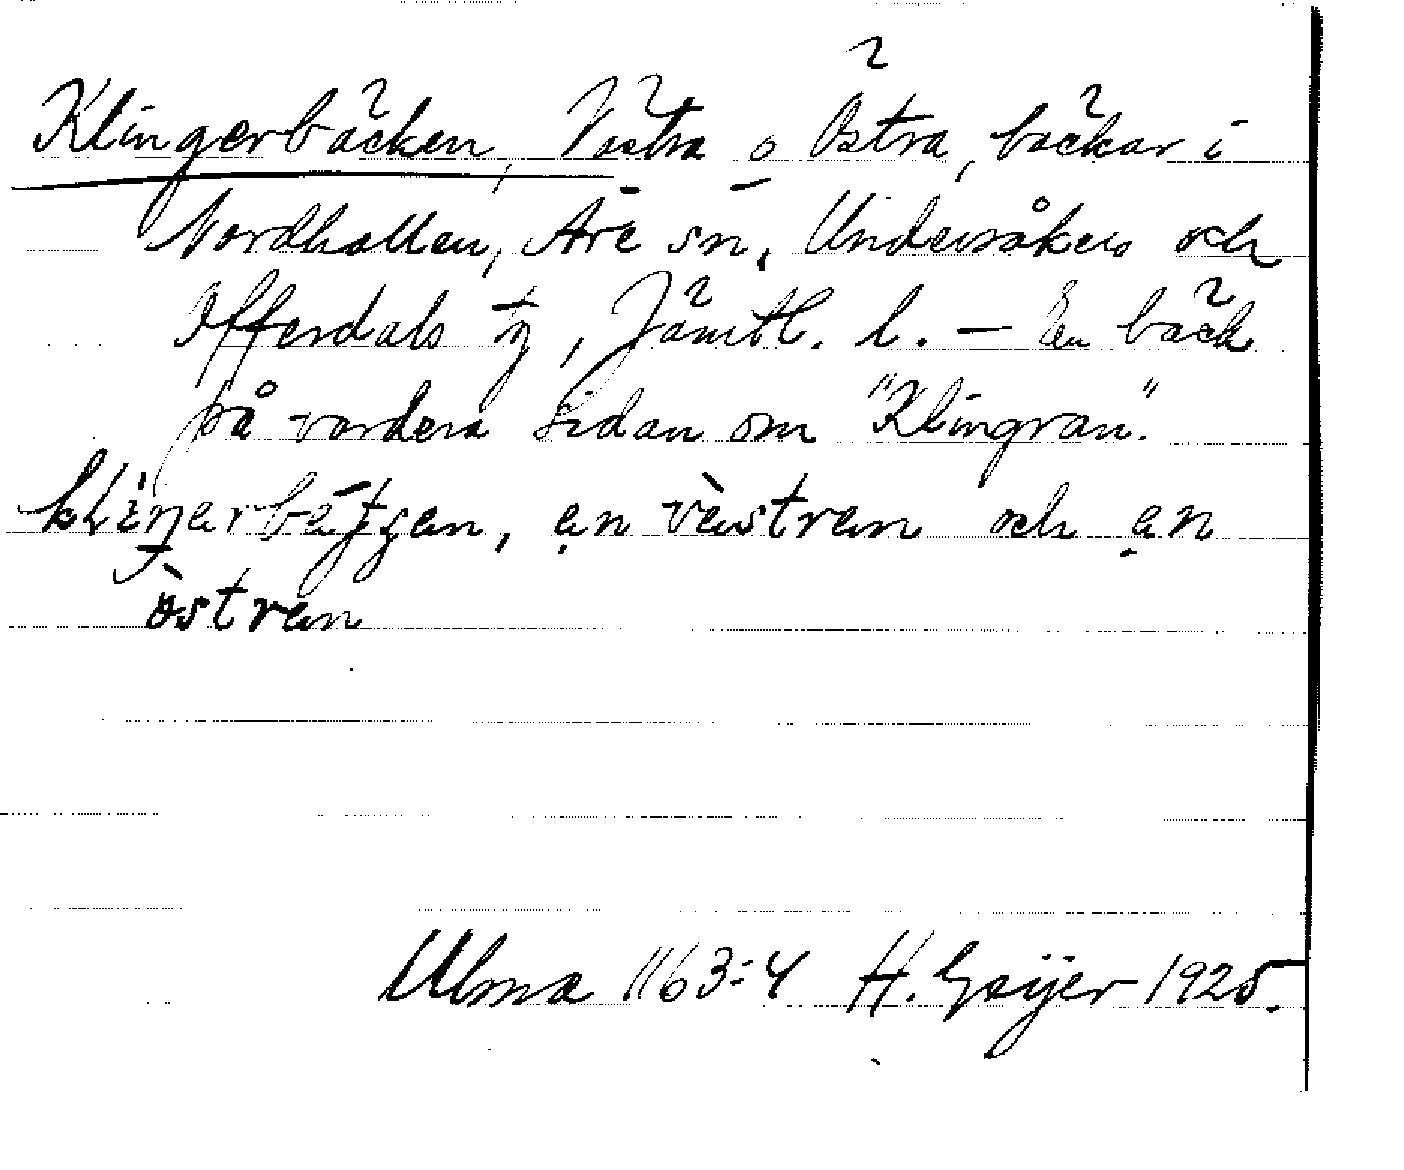 Klingerbäcken, Västra o Östra, bäckar i
Nordhallen, Åre sn, Undersåkers och
Offerdals tg, Jämtl. l. – En bäck
på vardera sidan om "Klingran".
en och en
Ulma 1163:4 H. Geijer 1925.